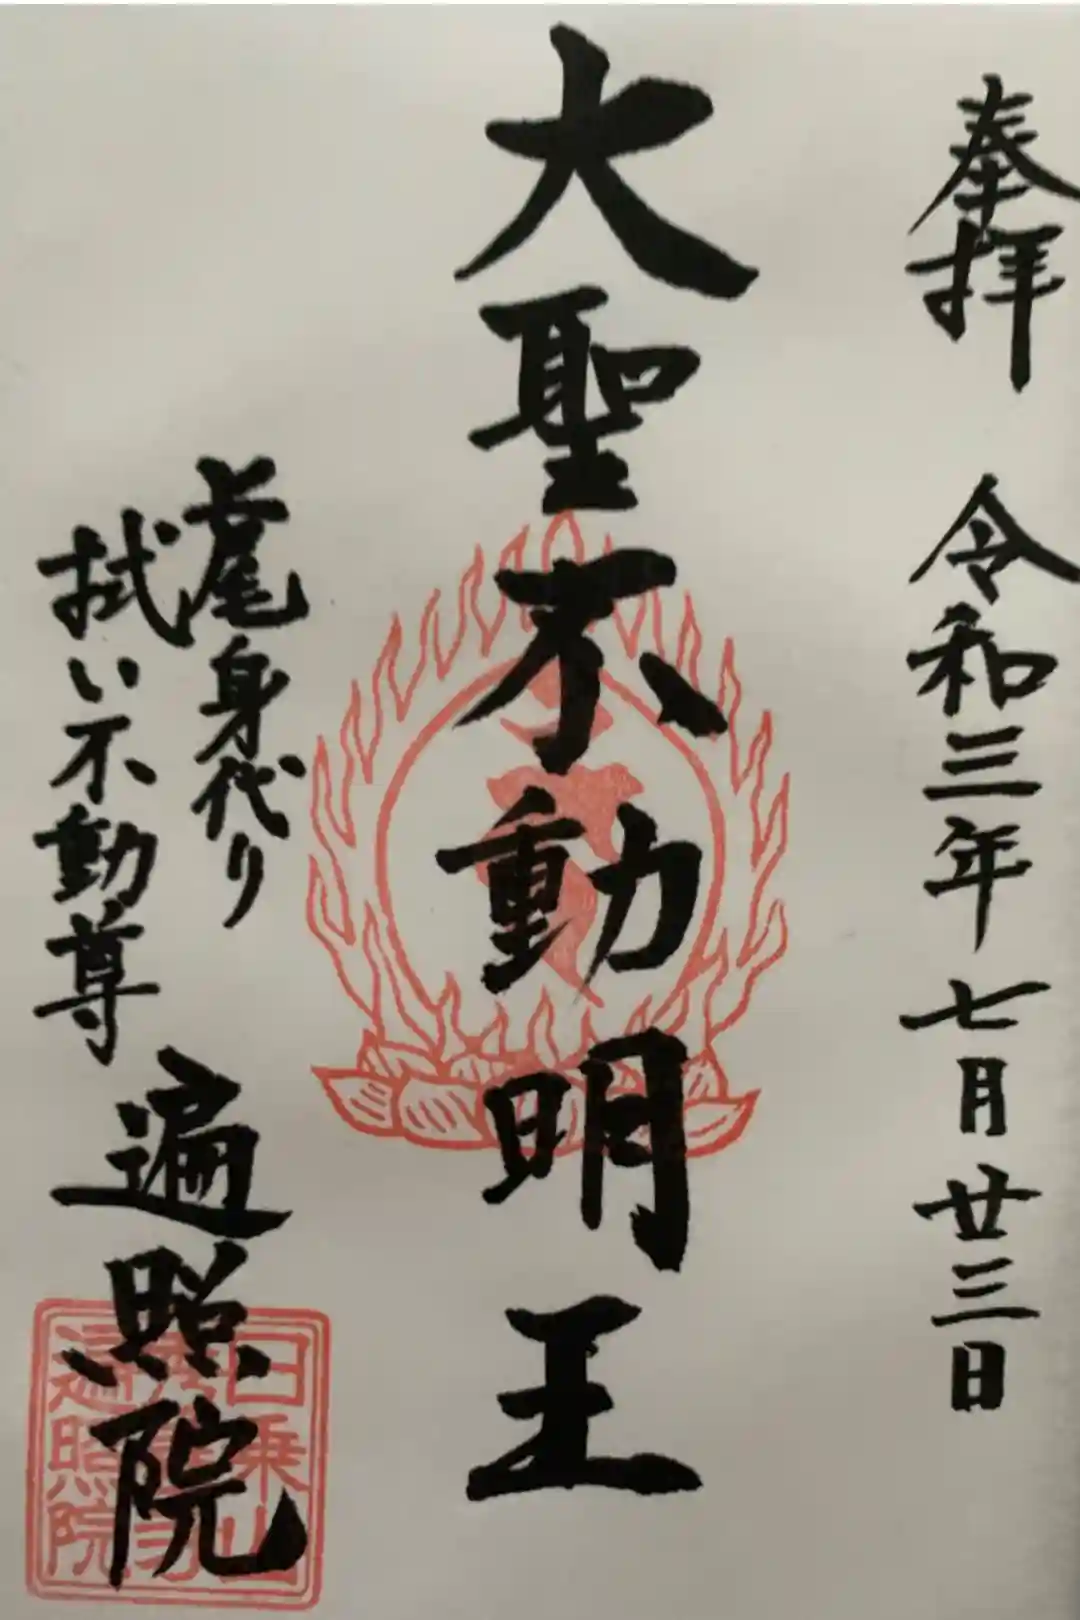 奉拝 令和三年七月廿三日
大聖不動明王
上尾身代り
拭い不動尊
遍照院
日乗山
遍照院